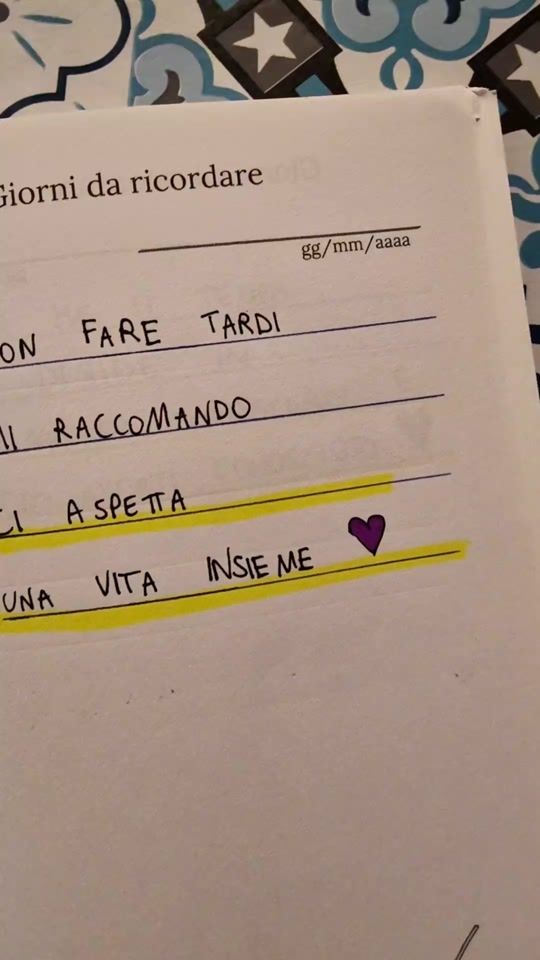 Giorni da ricordare
gg/mm/aaaa
ON FARE TARDI
MI RACCOMANDO
CI ASPETTA
UNA VITA INSIEME